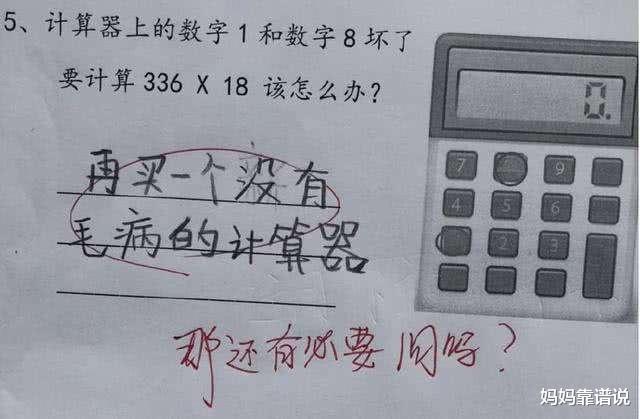 5、计算器上的数字1和数字8坏了
要计算336 X 18 该怎么办?
0.
7 9
4 5 6
2 3
再买一个没有
毛病的计算器
那还有必要问吗?
妈妈靠谱说